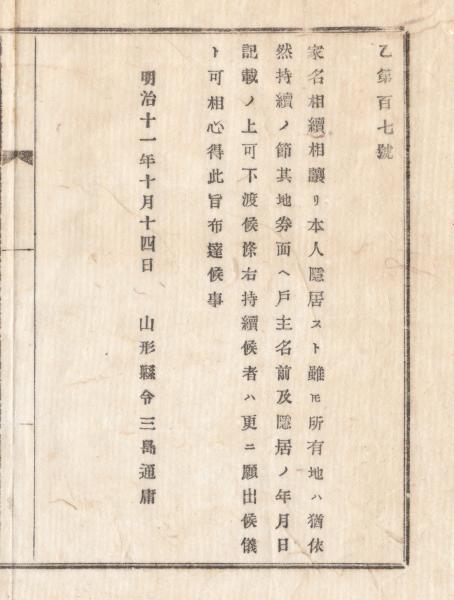 乙第百七號
家名相續相讓リ本人隱居スト雖𪜈所有地ハ猶依
然持續ノ節其地券面ヘ戶主名前及隱居ノ年月日
記載ノ上可下渡候條右持續候者ハ更ニ願出候儀
ト可相心得此旨布達候事
明治十一年十月十四日　山形縣令三島通庸